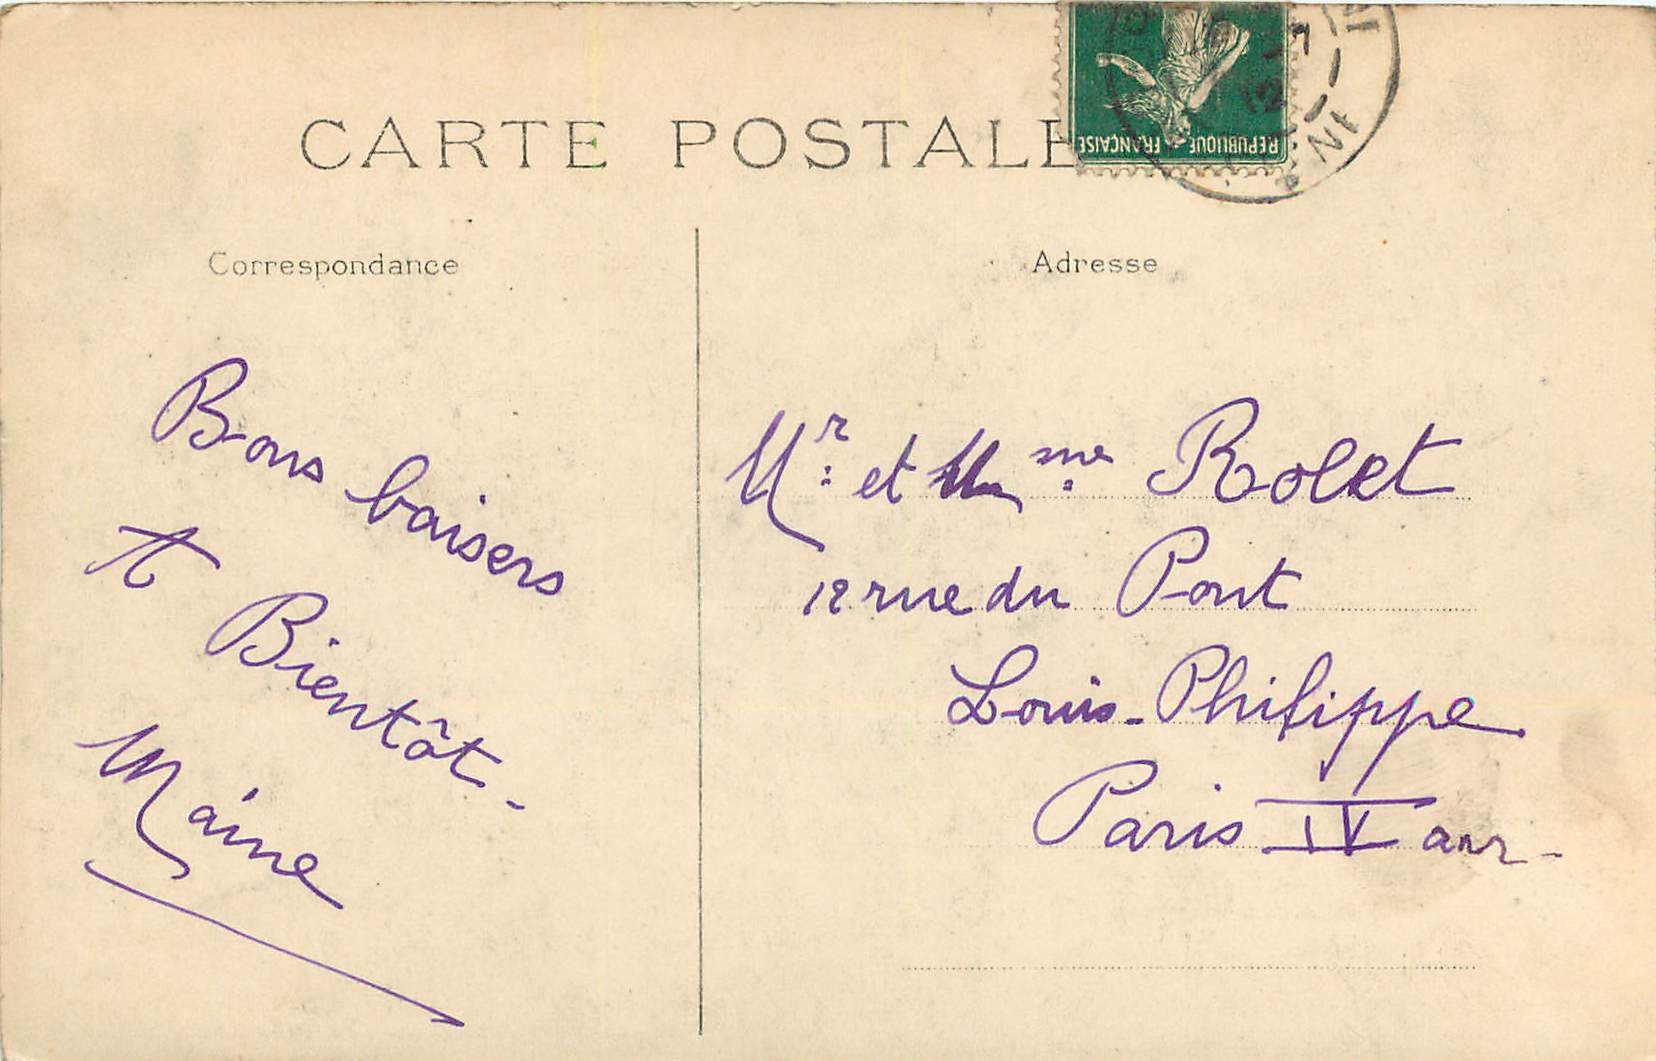 CARTE POSTALE
REPUBLIQUE FRANÇAISE
Correspondance
Bons baisers
A Bientôt -
Maine
Adresse
Mr: et Mme Rolet
12 rue du Pont
Louis-Philippe
Paris IV arr -